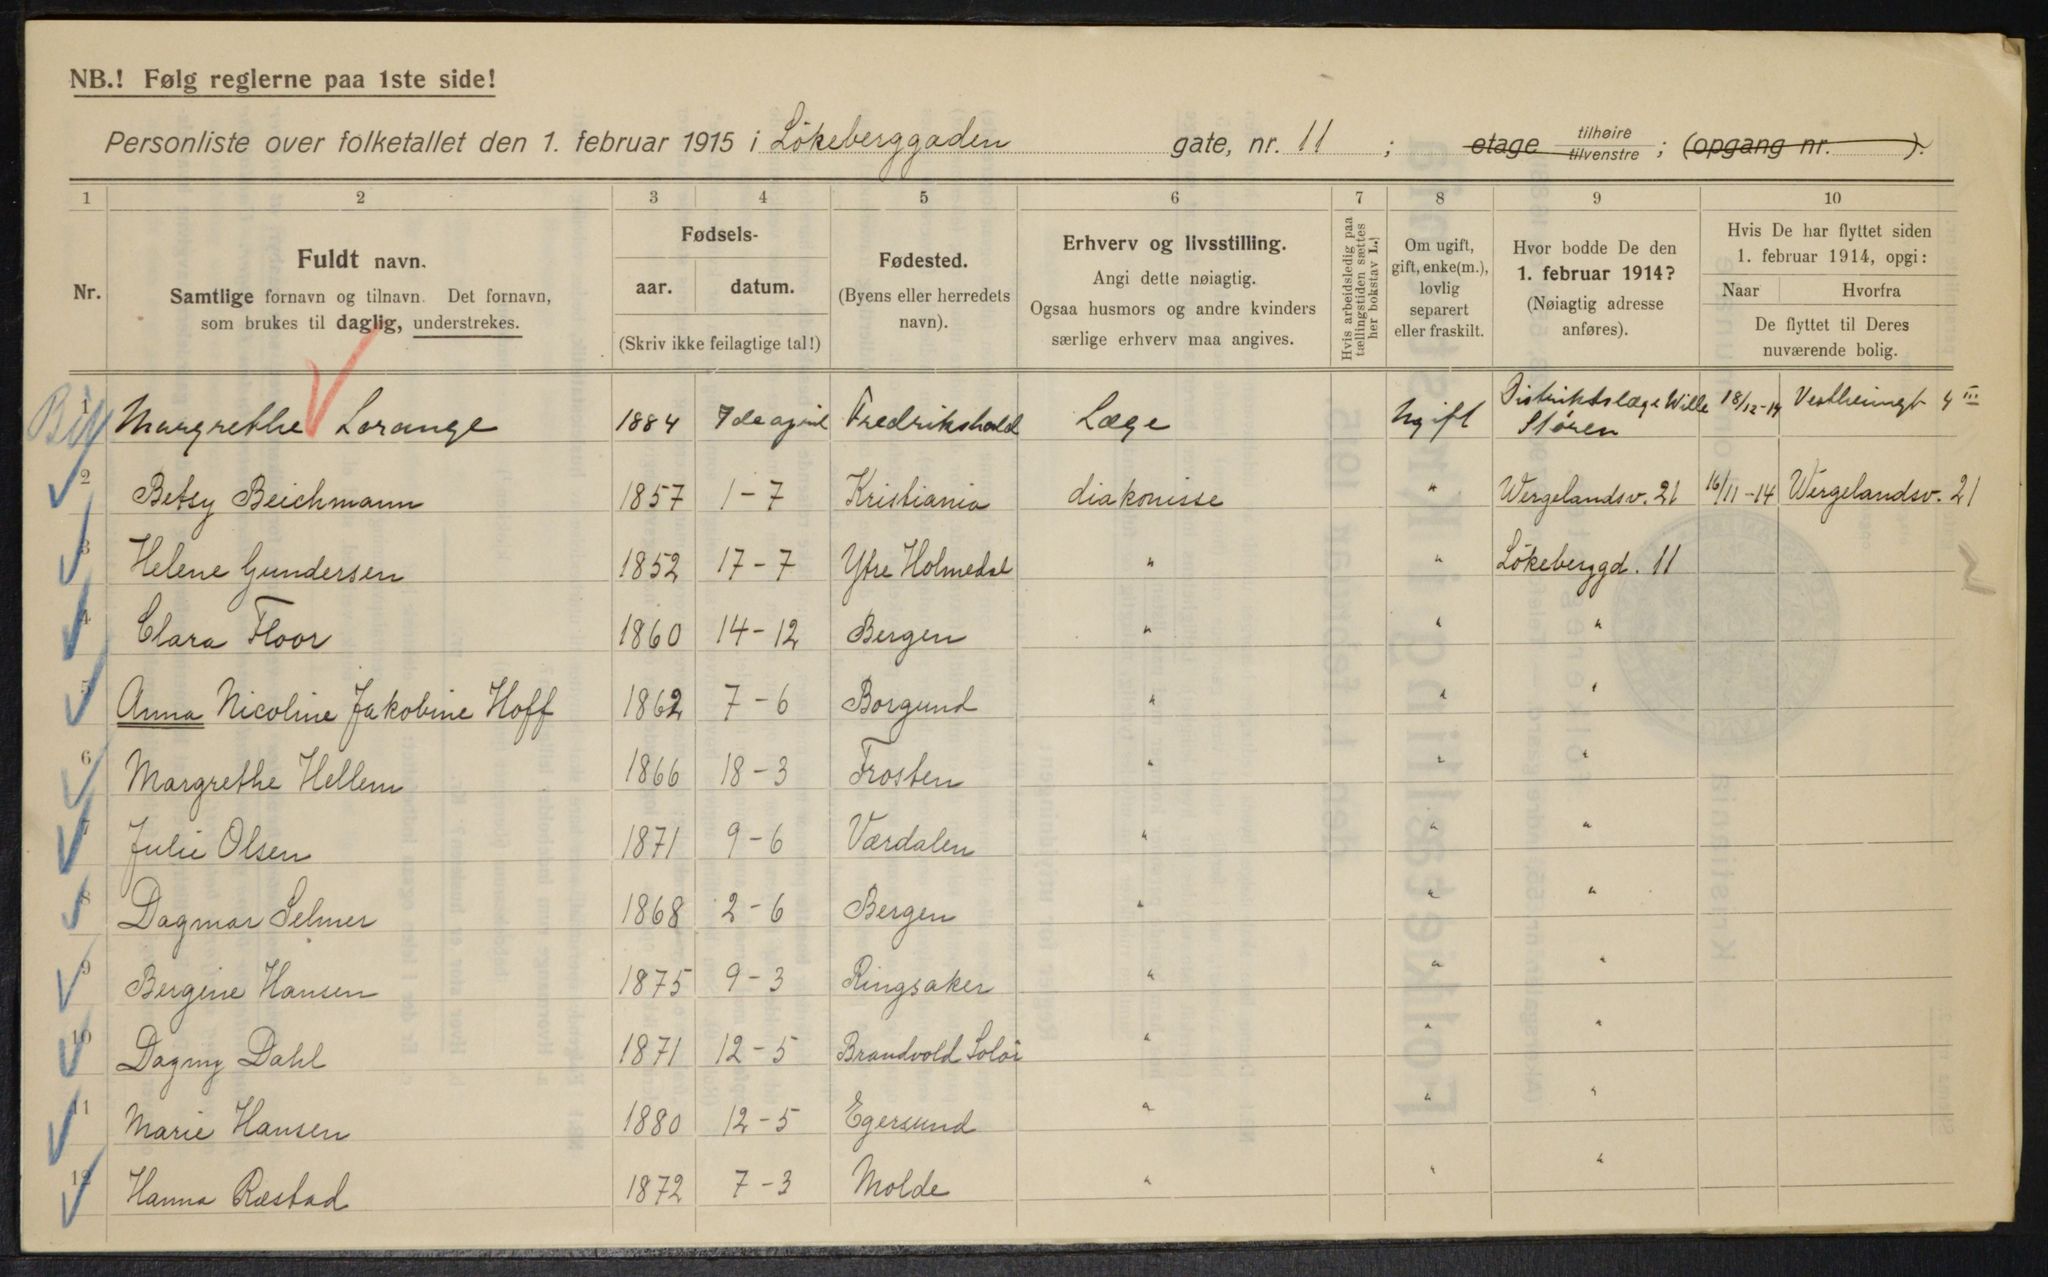 NB.! Følg reglerne paa 1ste side!
Personliste over folketallet den 1. februar 1915 i Lökeberggaden gate, nr. 11 ; etage tilhøire tilvenstre ; (opgang nr. ).
1 2 3 4 5 6 7 8 9 10
Nr.
Fuldt navn.
Samtlige fornavn og tilnavn. Det fornavn,
som brukes til daglig, understrekes.
Fødsels-
aar. datum.
(Skriv ikke feilagtige tal!)
Fødested.
(Byens eller herredets
navn).
Erhverv og livsstilling.
Angi dette nøiagtig.
Ogsaa husmors og andre kvinders
særlige erhverv maa angives.
Hvis arbeidsledig paa
tællingstiden sættes
her bokstav L.
Om ugift,
gift, enke(m.),
lovlig
separert
eller fraskilt.
Hvor bodde De den
1. februar 1914?
(Nøiagtig adresse
anføres).
Hvis De har flyttet siden
1. februar 1914, opgi:
Naar Hvorfra
De flyttet til Deres
nuværende bolig.
1 Margrethe Lorange 1884 7de april Fredrikshald Læge Ugift Distriktslæge Wille Støren 18/12-14 Vestheimgt 4 III
2 Betsy Beichmann 1857 1-7 Kristiania diakonisse " Wergelandsv. 21 16/11-14 Wergelandsv. 21
3 Helene Gundersen 1852 17-7 Ytre Holmedal " " Lökeberggd. 11
4 Clara Floor 1860 14-12 Bergen " " "
5 Anna Nicoline Jakobine Hoff 1862 7-6 Borgund " " "
6 Margrethe Hellem 1866 18-3 Frosten " " "
7 Julie Olsen 1871 9-6 Værdalen " " "
8 Dagmar Selmer 1868 2-6 Bergen " " "
9 Bergine Hansen 1875 9-3 Ringsaker " " "
10 Dagny Dahl 1871 12-5 Brandvold Solör " " "
11 Marie Hansen 1880 12-5 Egersund " " "
12 Hanna Ræstad 1872 7-3 Molde " " "